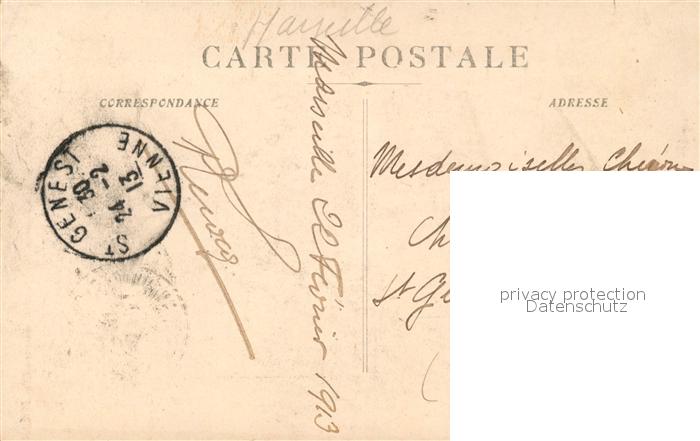 CARTE POSTALE
CORRESPONDANCE
ADRESSE
Marseille 21 Février 1913
ST GENEST
VIENNE
30
24-2
13
Mesdemoiselles
Ch
St Ge
privacy protection
Datenschutz